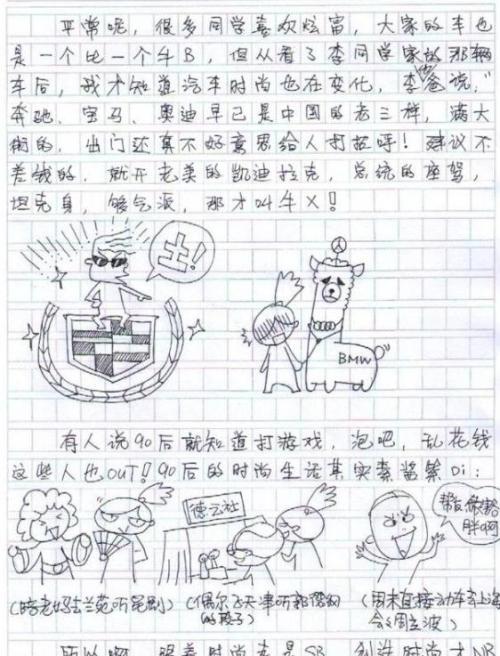 平常呢，很多同学喜欢炫富，大家的车也
是一个比一个牛B，但从看了李同学家的那辆
车后，我才知道汽车时尚也在变化，李爸说，"
奔驰、宝马、奥迪早已是中国的老三样，满大
街的，出门还真不好意思给人打招呼！建议不
差钱的，就开老美的凯迪拉克，总统的座驾，
坦克身，够气派，那才叫牛X！
土！
BMW
有人说90后就知道打游戏，泡吧，乱花钱
这些人也OUT！90后的时尚生活其实素
Di：
德云社
帮我做
(陪老妈去兰苑听昆剧)
(偶尔飞天津听郭德纲
的段子)
(周末直接动车去上海
会会周立波)
所以啊，跟着时尚走是SB，创造时尚才NB